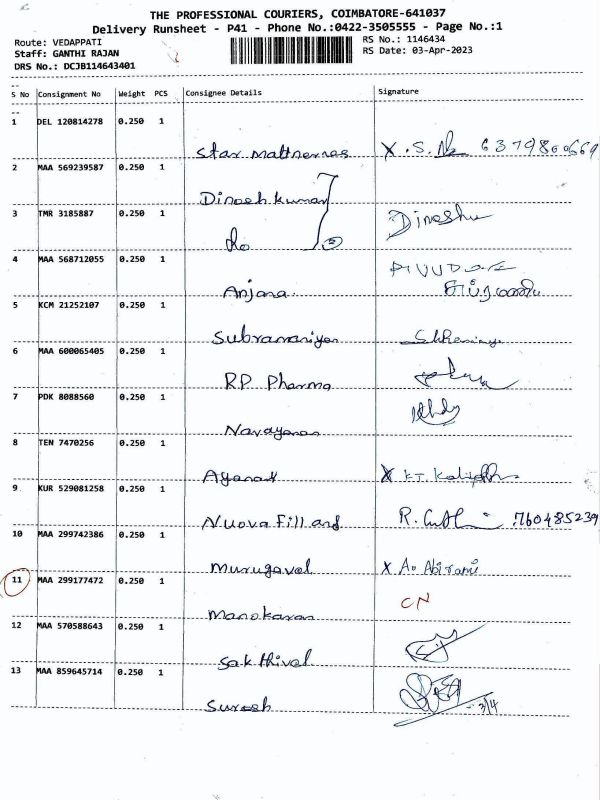 THE PROFESSIONAL COURIERS, COIMBATORE-641037
Delivery Runsheet - P41 - Phone No.:0422-3505555 - Page No.:1
Route: VEDAPPATI
Staff: GANTHI RAJAN
DRS No.: DCJB114643401
RS No.: 1146434
RS Date: 03-Apr-2023
S No Consignment No Weight PCS Consignee Details Signature
1 DEL 120814278 0.250 1
Star X . S.
2 MAA 569239587 0.250 1
Dinesh kumar
3 TMR 3185887 0.250 1
do Dinesh
4 MAA 568712055 0.250 1
Anjana
5 KCM 21252107 0.250 1
Subramaniyan
6 MAA 600065405 0.250 1
RP Pharma
7 PDK 8088560 0.250 1
Narayanan
8 TEN 7470256 0.250 1
X K.T.
9 KUR 529081258 0.250 1
Nuova Fill and R. 760485239
10 MAA 299742386 0.250 1
Murugavel X A. Abirami
11 MAA 299177472 0.250 1
Manokaran CN
12 MAA 570588643 0.250 1
Sakthivel
13 MAA 859645714 0.250 1
Suresh 3/4